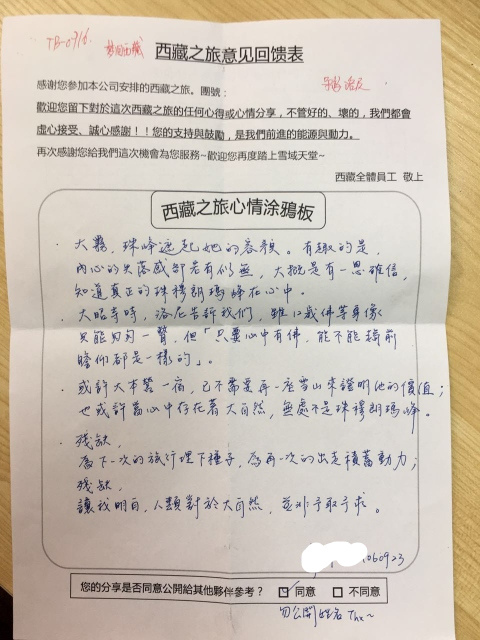 TB-0916
夢回西藏
西藏之旅意见回馈表
感谢您參加本公司安排的西藏之旅．團號：
歡迎您留下對於這次西藏之旅的任何心得或心情分享，不管好的、壞的，我們都會
虛心接受、誠心感謝！！您的支持與鼓勵，是我們前進的能源與動力。
再次感謝您給我們這次機會為您服務~歡迎您再度踏上雪域天堂~
西藏全體員工 敬上
西藏之旅心情涂鴉板
· 大霧，珠峰遮起她的容顏。有趣的是，
內心的失落感卻若有似無，大抵是有一思確信，
知道真正的珠穆朗瑪峰在心中。
· 大昭寺時，洛尼告訴我們，雖12歲佛等身像
只能匆匆一瞥，但「只要心中有佛，能不能稿前
瞻仰都是一樣的」。
· 或許大本營一宿，已不需要再一座雪山來證明他的價值；
也或許當心中存在著大自然，無處不是珠穆朗瑪峰。
· 殘缺，
為下一次的旅行埋下種子，為再一次的出走積蓄動力；
殘缺，
讓我明白，人類對於大自然，並非予取予求。
1060923
您的分享是否同意公開給其他夥伴參考？ ☑ 同意 □ 不同意
勿公開姓名 Thx~